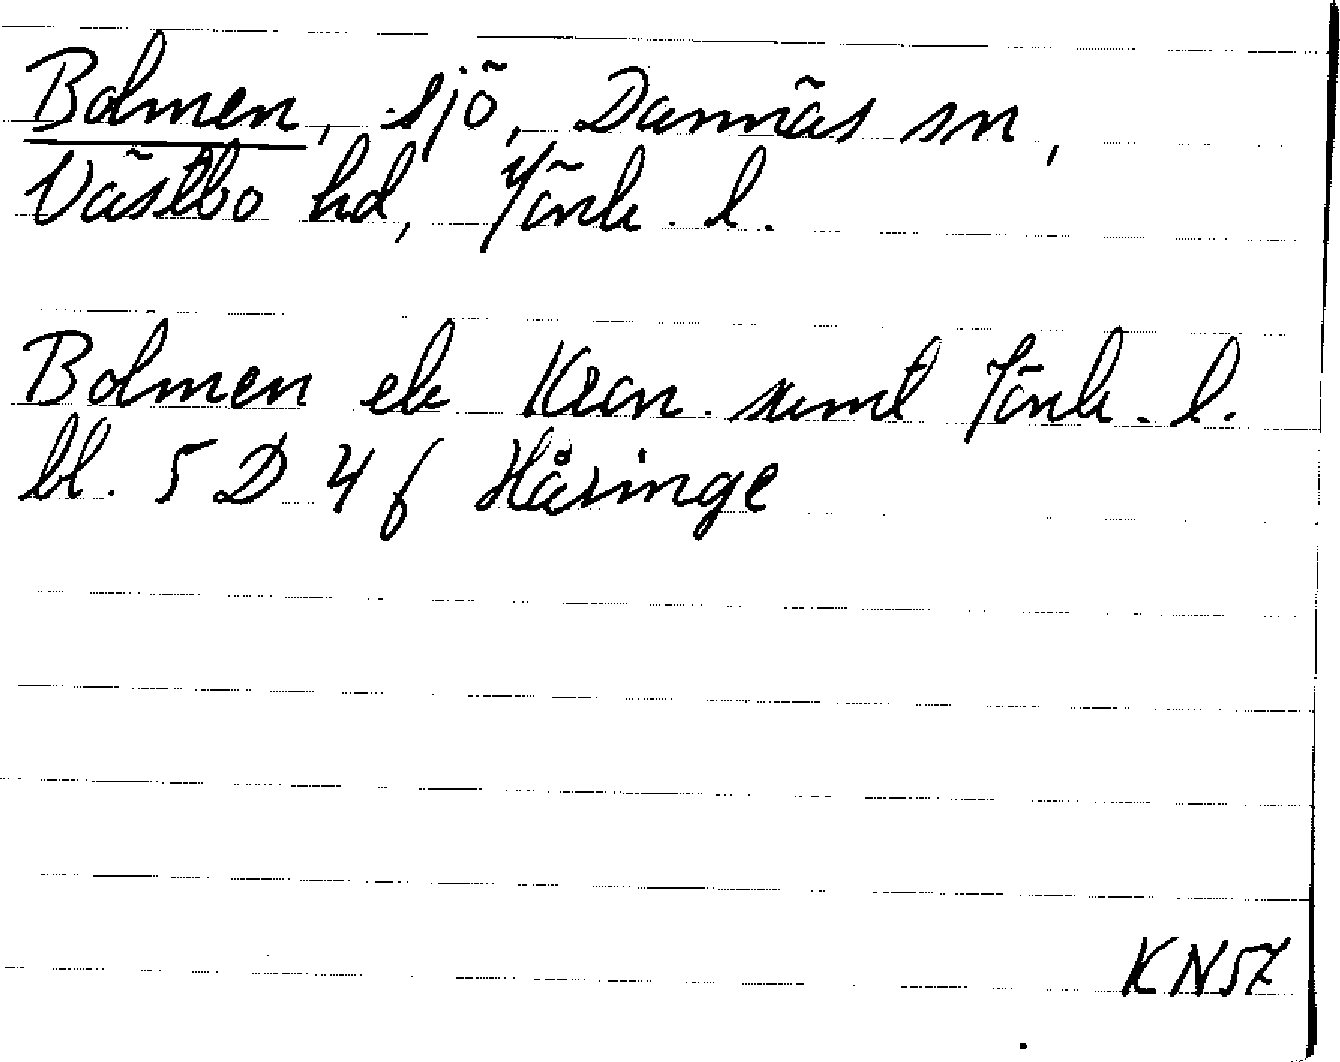 Bolmen, sjö, Dannäs sn,
Västbo hd, Jönk. l.
Bolmen ek Kron. samt Jönk. l.
bl. 5 D 4 f Håringe
KN57